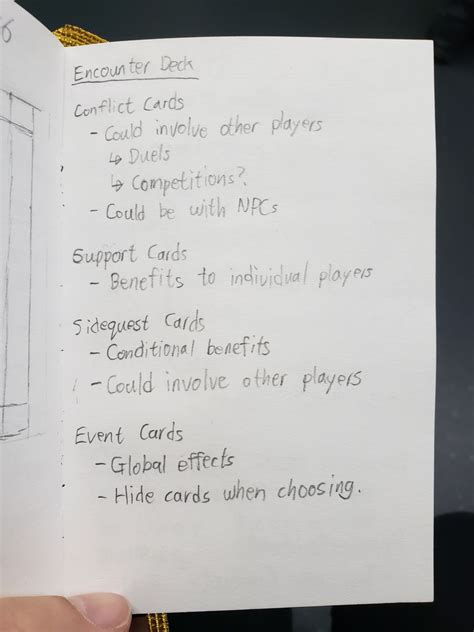 Encounter Deck
Conflict Cards
- Could involve other players
↳ Duels
↳ Competitions?
- Could be with NPCs
Support Cards
- Benefits to individual players
Sidequest Cards
- Conditional benefits
- Could involve other players
Event Cards
- Global effects
- Hide cards when choosing.